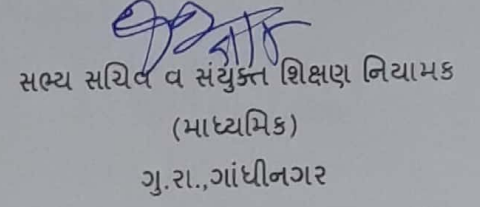 સભ્ય સચિવ વ સંયુક્ત શિક્ષણ નિયામક
(માધ્યમિક)
ગુ.રા.,ગાંધીનગર